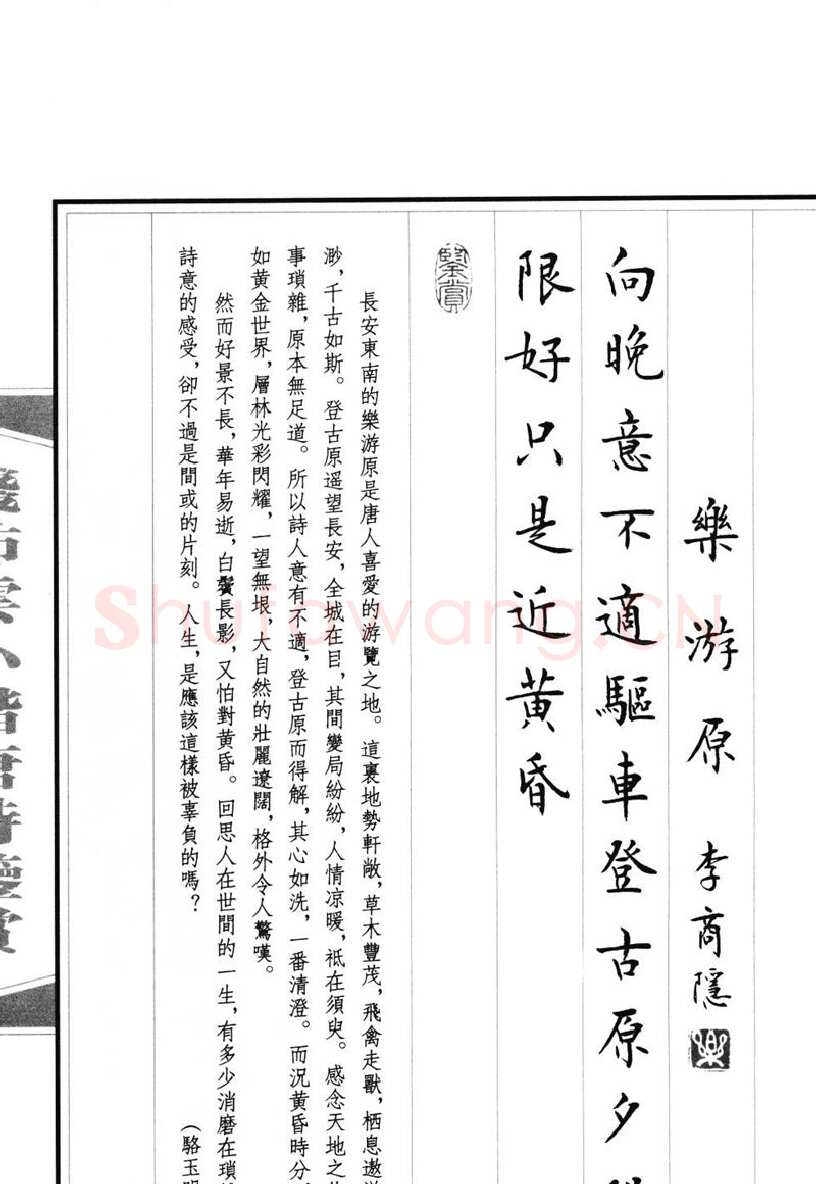 樂游原 李商隱 樂
向晚意不適驅車登古原夕
限好只是近黄昏
鑒賞
長安東南的樂游原是唐人喜愛的游覽之地。這裏地勢軒敞,草木豐茂,飛禽走獸,栖息遨游
渺,千古如斯。登古原遥望長安,全城在目,其間變局紛紛,人情凉暖,祇在須臾。感念天地之
事瑣雜,原本無足道。所以詩人意有不適,登古原而得解,其心如洗,一番清澄。而況黄昏時分,
如黄金世界,層林光彩閃耀,一望無垠,大自然的壯麗遼闊,格外令人驚嘆。
然而好景不長,華年易逝,白鬢長影,又怕對黄昏。回思人在世間的一生,有多少消磨在瑣
詩意的感受,卻不過是間或的片刻。人生,是應該這樣被辜負的嗎?
(駱玉明
Shufawang.CN